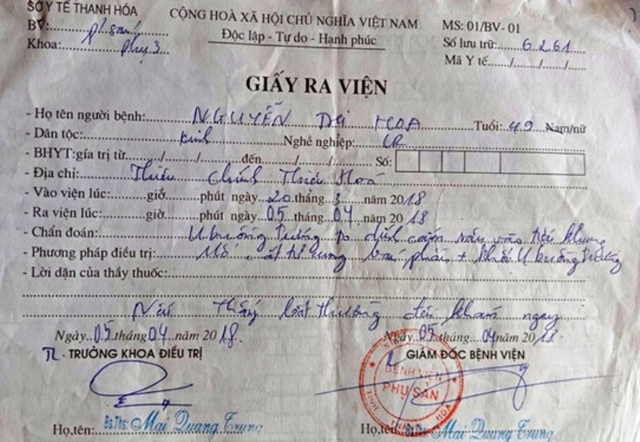 SỞ Y TẾ THANH HÓA
CỘNG HOÀ XÃ HỘI CHỦ NGHĨA VIỆT NAM
MS: 01/BV- 01
BV: P.sản
Độc lập - Tự do - Hạnh phúc
Số lưu trữ: 6261
Khoa: phụ 3
Mã Y tế ..../..../....
GIẤY RA VIỆN
- Họ tên người bệnh: NGUYỄN THỊ HOA Tuổi: 49 Nam/nữ
- Dân tộc: Kinh Nghề nghiệp: LR
- BHYT: gía trị từ ..../..../.... đến ..../..../.... Số:
- Địa chỉ: Thiệu Chính Thiệu Hoá
- Vào viện lúc: giờ phút ngày 20 tháng 3 năm 2018
- Ra viện lúc: phút ngày 05 tháng 04 năm 2018
- Chẩn đoán: U buồng trứng P dính vào tiểu khung
- Phương pháp điều trị: Mổ, cắt tử cung phải + khối U buồng trứng
- Lời dặn của thầy thuốc:
Nếu thấy bất thường đến khám ngay
Ngày 05 tháng 04 năm 2018
Ngày 05 tháng 04 năm 2018
TL. TRƯỞNG KHOA ĐIỀU TRỊ
GIÁM ĐỐC BỆNH VIỆN
BỆNH VIỆN
PHỤ SẢN
Họ, tên: Bs.Ths: Mai Quang Trung
Họ, tên: Bs.Ths: Mai Quang Trung